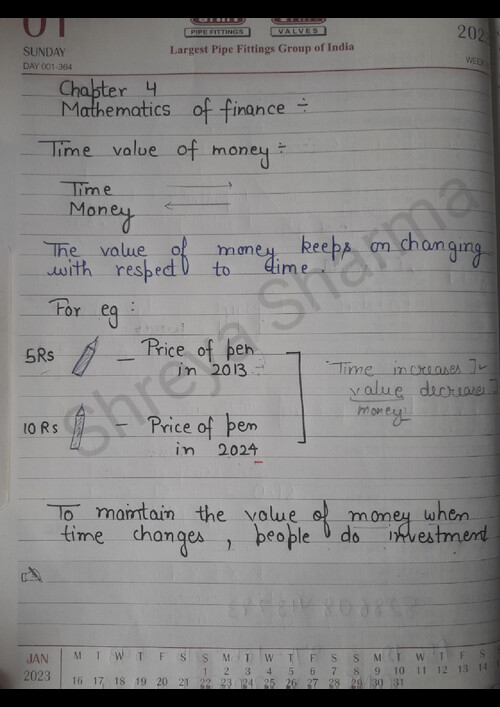 01
PIPE FITTINGS VALVES
SUNDAY
DAY 001-364
Largest Pipe Fittings Group of India
202
WEEK
Chapter 4
Mathematics of finance ÷
Time value of money ÷
Time
Money
The value of money keeps on changing
with respect to time.
For eg :
5Rs — Price of pen
in 2013
Time increases
value decreases
money
10 Rs — Price of pen
in 2024
To maintain the value of money when
time changes, people do investment
Shreya Sharma
JAN
2023
M T W T F S S M T W T F S S M T W T F S S M T W T F S
1 2 3 4 5 6 7 8 9 10 11 12 13 14
16 17 18 19 20 21 22 23 24 25 26 27 28 29 30 31